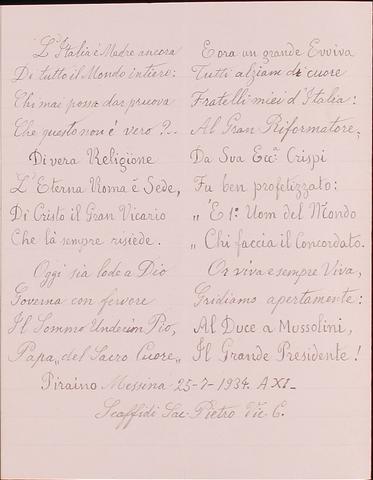 L'Italia è Madre ancora
Di tutto il Mondo intiero:
Chi mai possa dar pruova
Che questo non é vero ?..
Di vera Religione
L'Eterna Roma è Sede,
Di Cristo il Gran Vicario
Che là sempre risiede.
Oggi sia lode a Dio
Governa con fervore
Il Sommo Undecim Pio,
Papa, del Sacro Cuore,,
E ora un grande Evviva
Tutti alziam di cuore
Fratelli miei d'Italia:
Al Gran Riformatore,
Da Sua Ecc.a Crispi
Fu ben profetizzato:
,, È 1º Uom del Mondo
,, Chi faccia il Concordato.
Or viva e sempre Viva,
Gridiamo apertamente:
Al Duce a Mussolini,
Il Grande Presidente!
Piraino Messina 25-7-1934. A XI_
Scaffidi Sac. Pietro Vic. C.